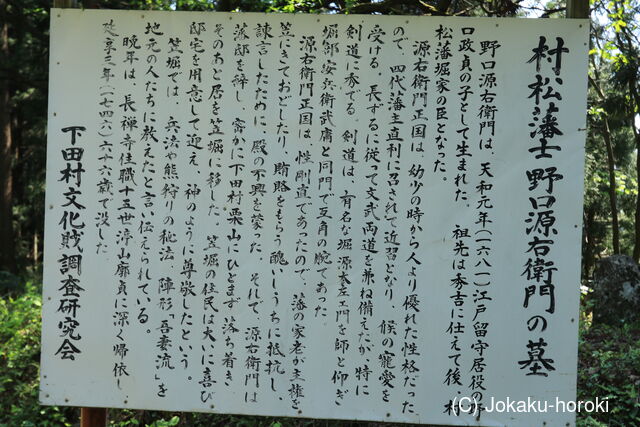 村松藩士 野口源右衛門の墓
野口源右衛門は、天和元年(一六八一)江戸留守居役の野
口政貞の子として生まれた。祖先は秀吉に仕えて後、村
松藩堀家の臣となった。
源右衛門正国は、幼少の時から人より優れた性格だった
ので、四代藩主直利に召されて近習となり、候の寵愛を
受ける。長ずるに従って文武両道を兼ね備えたが、特に
剣道に秀でる。剣道は、有名な堀源太左エ門を師と仰ぎ、
堀部安兵衛武庸と同門で互角の腕であった。
源右衛門正国は、性剛直であったので、藩の家老が主権を
笠にきておどしたり、賄賂をもらう醜いしうちに抵抗し、
諫言したために、殿の不興を蒙った。それで、源右衛門は
藩邸を辞し、密かに下田村栗山にひとまず落ち着き、
そのあと居を笠堀に移した。笠堀の住民は大いに喜び
邸宅を用意して迎え、神のように尊敬したという。
笠堀では、兵法や熊狩りの秘法、陣形「吾妻流」を
地元の人たちに教えたと言い伝えられている。
晩年は、長禅寺住職十三世浄山廓貞に深く帰依し
延享三年(一七四六)六十六歳で没した。
下田村文化財調査研究会
(C) Jokaku-horoki